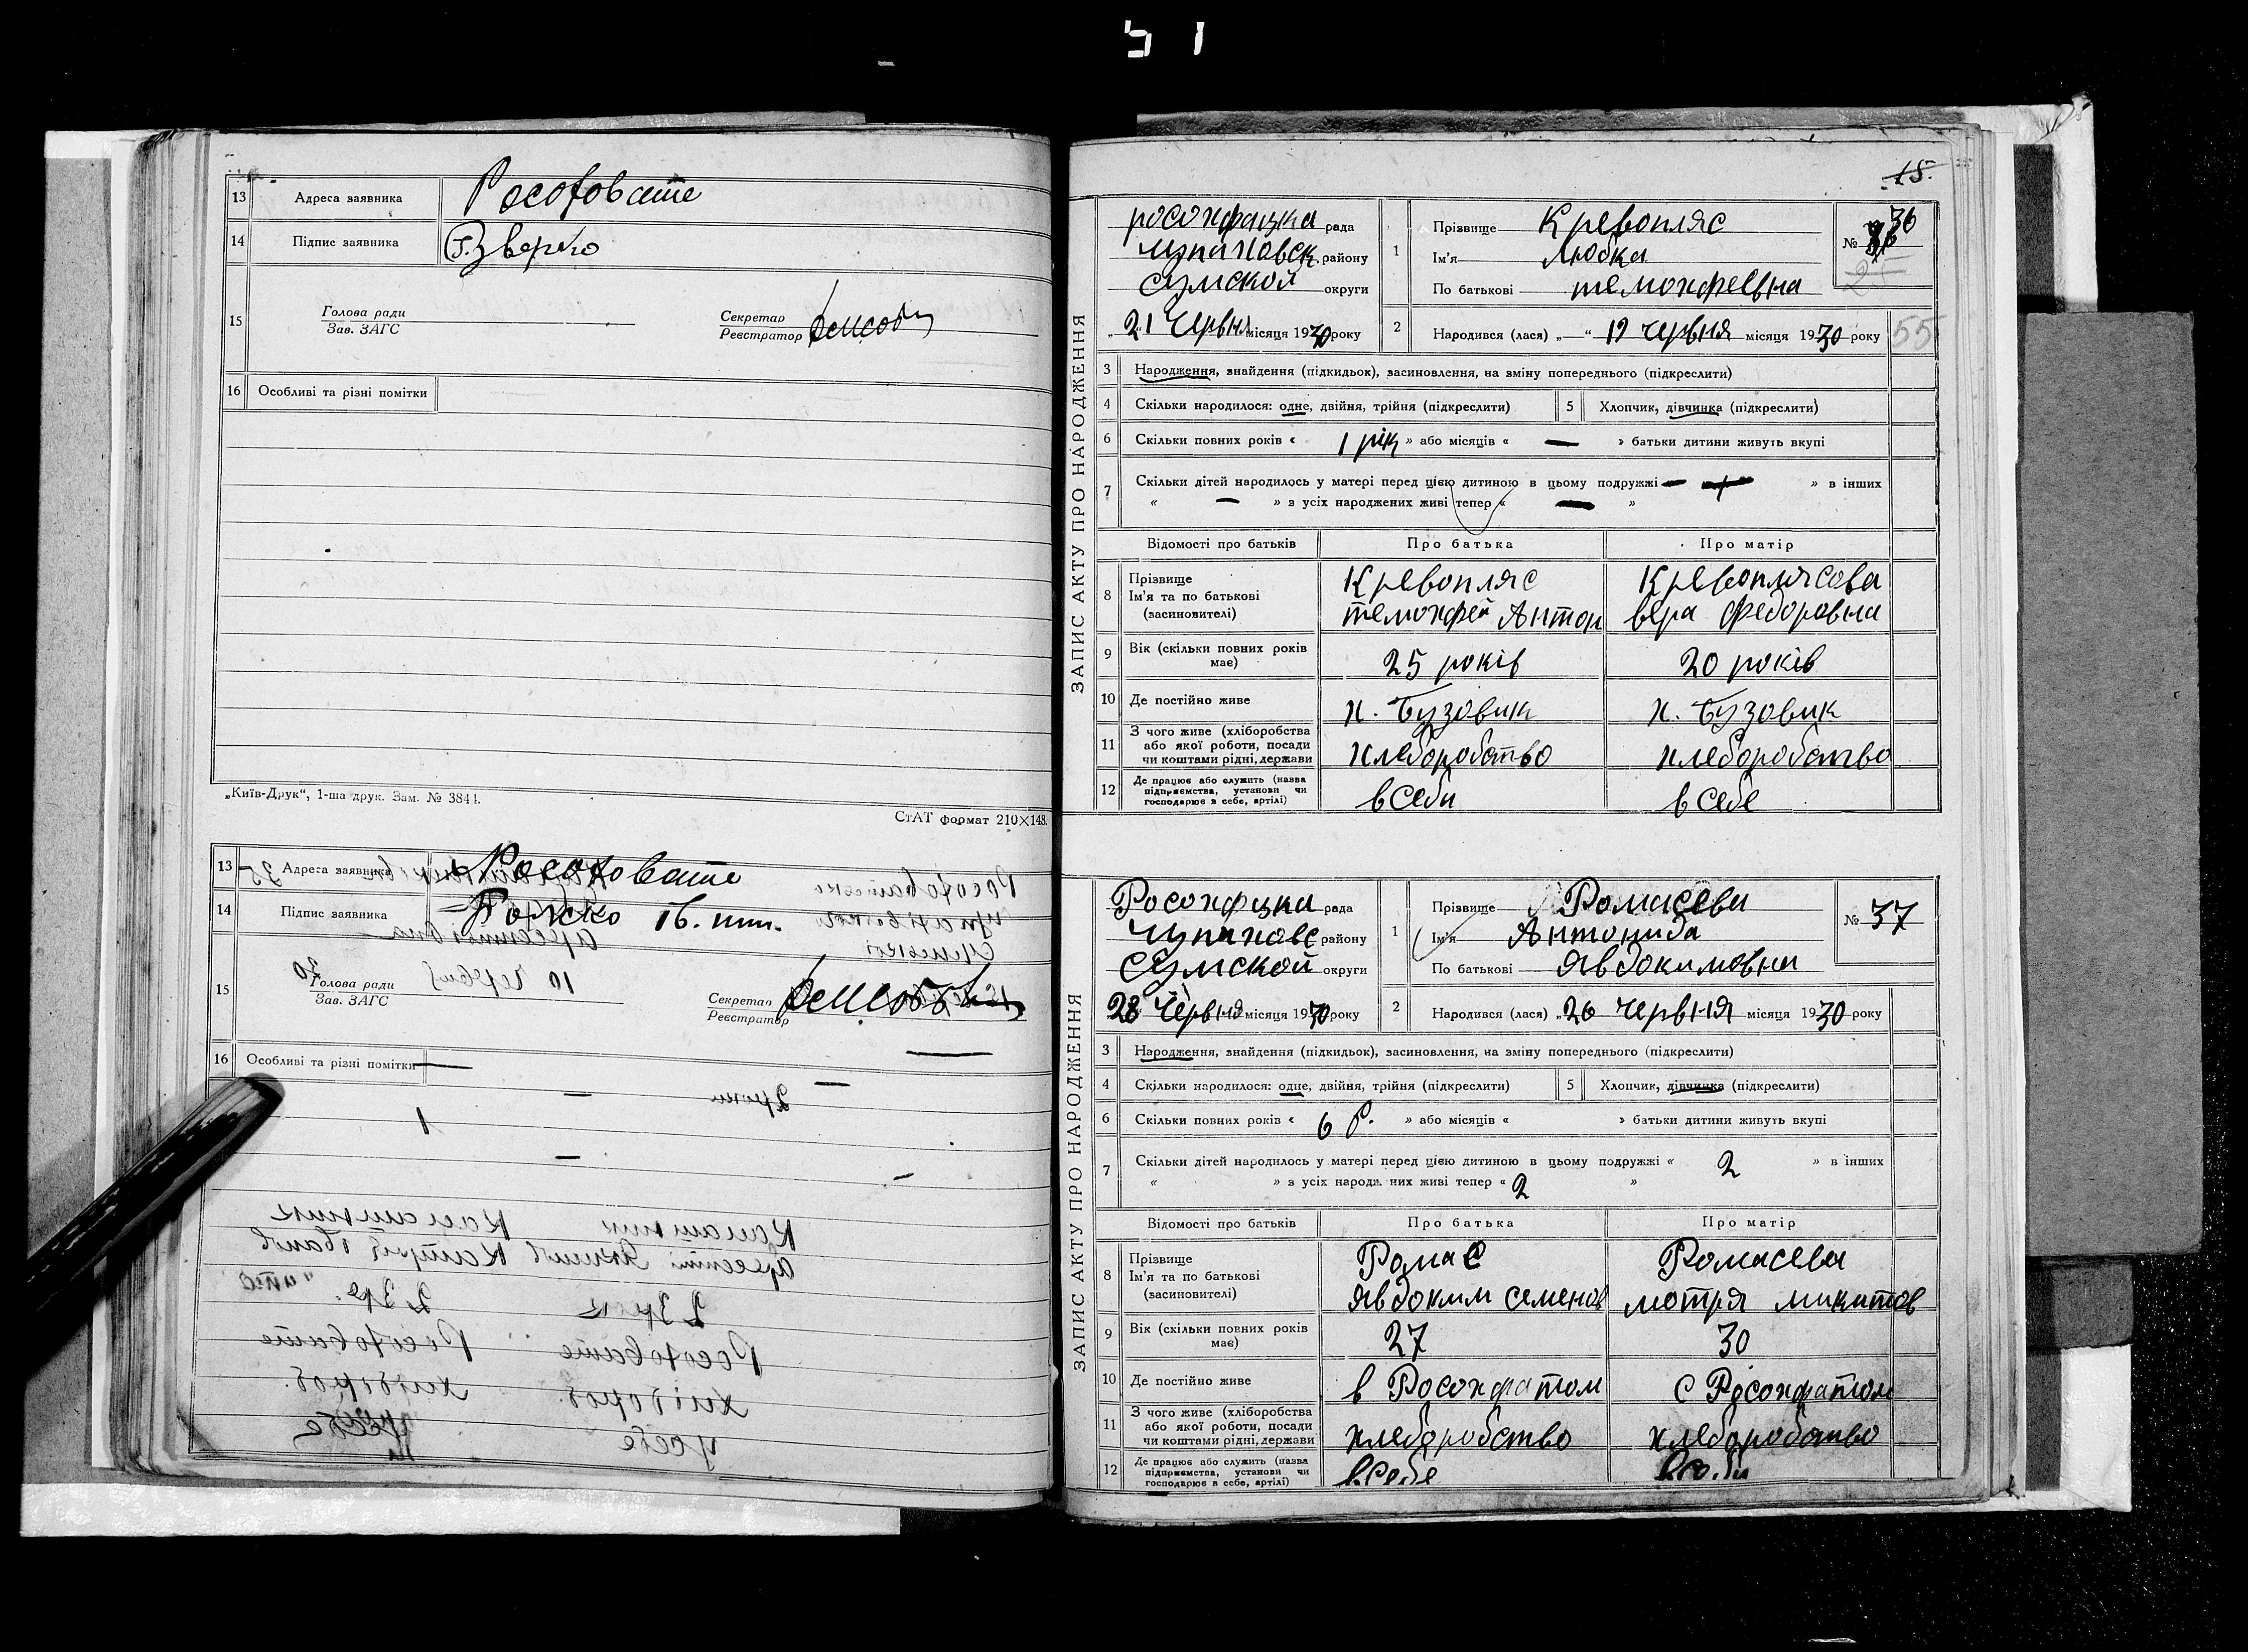 51
13 Адреса заявника Росоховате
14 Підпис заявника Г. Зверко
15 Голова ради
Зав. ЗАГС
Секретар
Реєстратор
16 Особливі та різні помітки
„Київ-Друк“, 1-ша друк. Зам. № 3841.
СтАТ формат 210×148.
13 Адреса заявника Росоховате
14 Підпис заявника
15 Голова ради
Зав. ЗАГС
Секретар
Реєстратор
16 Особливі та різні помітки —
15.
ЗАПИС АКТУ ПРО НАРОДЖЕННЯ
росохфацка рада
чупаховск. району
сумской округи
„21 червня місяця 1930 року
1 Прізвище Кревопляс
Ім'я Любка
По батькові темохфеевна
№ 36
2 Народився (лася) „—“ 19 червня місяця 1930 року
55
3 Народження, знайдення (підкидьок), засиновлення, на зміну попереднього (підкреслити)
4 Скільки народилося: одне, двійня, трійня (підкреслити) 5 Хлопчик, дівчинка (підкреслити)
6 Скільки повних років « 1 рік » або місяців « — » батьки дитини живуть вкупі
7 Скільки дітей народилось у матері перед цією дитиною в цьому подружжі — » в інших
« — » з усіх народжених живі тепер « — »
Відомості про батьків Про батька Про матір
8 Прізвище
Ім'я та по батькові
(засиновителі)
Кревопляс Кревоплясова
темохфей Антон вера федоровна
9 Вік (скільки повних років має) 25 років 20 років
10 Де постійно живе х. Бузовик х. Бузовик
11 З чого живе (хліборобства або якої роботи, посади чи коштами рідні, держави хлеборобство хлеборобство
12 Де працює або служить (назва підприємства, установи чи господарює в себе, артілі) в себи в себе
ЗАПИС АКТУ ПРО НАРОДЖЕННЯ
Росохфцка рада
чупаховс району
сумской округи
28 червня місяця 1930 року
1 Прізвище Ромасева
Ім'я Антонида
По батькові Явдокимовна
№ 37
2 Народився (лася) „26 червня місяця 1930 року
3 Народження, знайдення (підкидьок), засиновлення, на зміну попереднього (підкреслити)
4 Скільки народилося: одне, двійня, трійня (підкреслити) 5 Хлопчик, дівчинка (підкреслити)
6 Скільки повних років « 6 р. » або місяців « » батьки дитини живуть вкупі
7 Скільки дітей народилось у матері перед цією дитиною в цьому подружжі « 2 » в інших
« » з усіх народж них живі тепер « 2 »
Відомості про батьків Про батька Про матір
8 Прізвище
Ім'я та по батькові
(засиновителі)
Ромас Ромасева
Явдоким семенов мотря микитов
9 Вік (скільки повних років має) 27 30
10 Де постійно живе в Росохфатом с Росохфатом
11 З чого живе (хліборобства або якої роботи, посади чи коштами рідні, держави хлеборобство хлеборобство
12 Де працює або служить (назва підприємства, установи чи господарює в себе, артілі) в себе